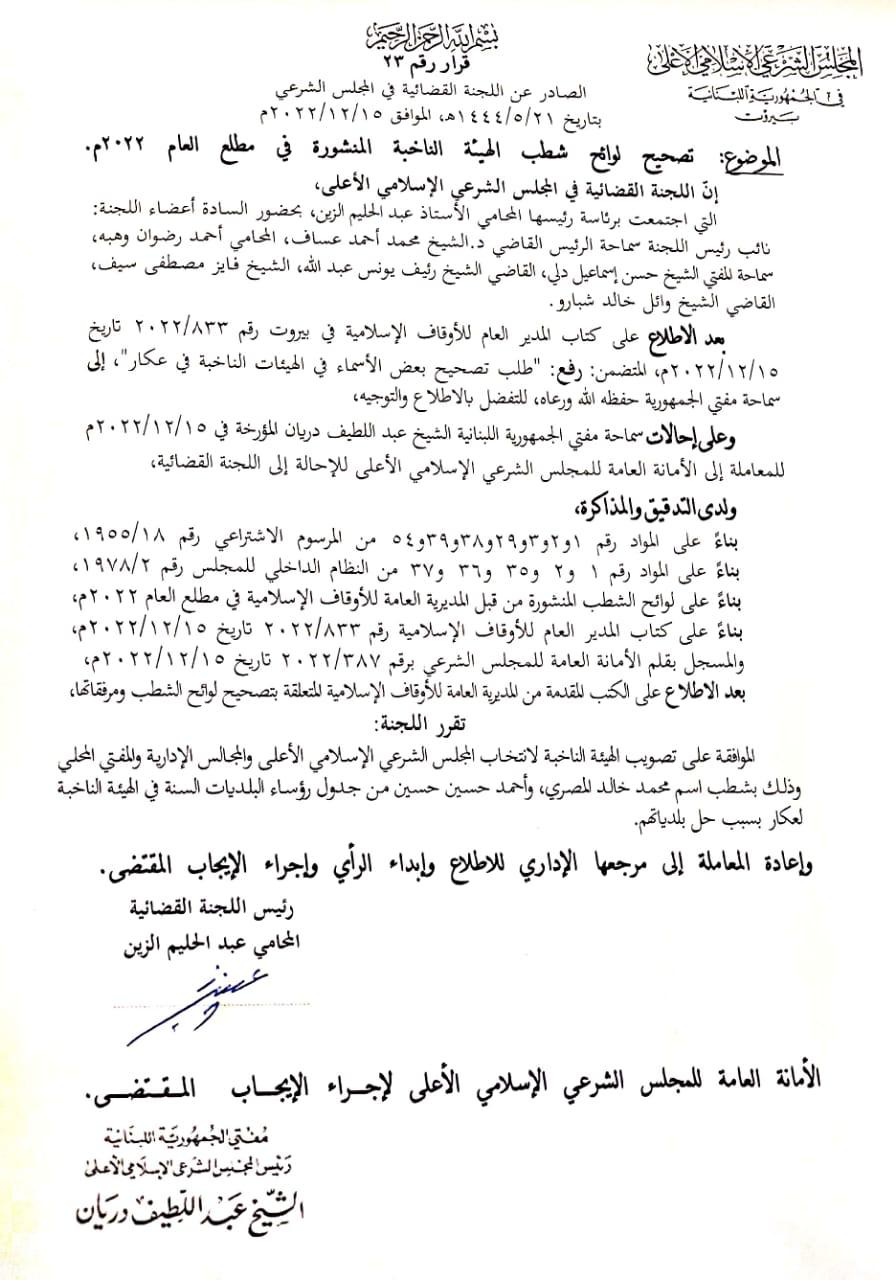 بسم الله الرحمن الرحيم
المجلس الشرعي الإسلامي الأعلى
في الجمهورية اللبنانية
بيروت
قرار رقم ٢٣
الصادر عن اللجنة القضائية في المجلس الشرعي
بتاريخ ١٤٤٤/٥/٢١هـ، الموافق ٢٠٢٢/١٢/١٥م
الموضوع: تصحيح لوائح شطب الهيئة الناخبة المنشورة في مطلع العام ٢٠٢٢م.
إنّ اللجنة القضائية في المجلس الشرعي الإسلامي الأعلى،
التي اجتمعت برئاسة رئيسها المحامي الأستاذ عبد الحليم الزين، بحضور السادة أعضاء اللجنة:
نائب رئيس اللجنة سماحة الرئيس القاضي د.الشيخ محمد أحمد عساف، المحامي أحمد رضوان وهبه،
سماحة المفتي الشيخ حسن إسماعيل دلي، القاضي الشيخ رئيف يونس عبد الله، الشيخ فايز مصطفى سيف،
القاضي الشيخ وائل خالد شبارو.
بعد الاطلاع على كتاب المدير العام للأوقاف الإسلامية في بيروت رقم ٢٠٢٢/٨٣٣ تاريخ
٢٠٢٢/١٢/١٥م، المتضمن: رفع: "طلب تصحيح بعض الأسماء في الهيئات الناخبة في عكار"، إلى
سماحة مفتي الجمهورية حفظه الله ورعاه، للتفضل بالاطلاع والتوجيه،
وعلى إحالات سماحة مفتي الجمهورية اللبنانية الشيخ عبد اللطيف دريان المؤرخة في ٢٠٢٢/١٢/١٥م
للمعاملة إلى الأمانة العامة للمجلس الشرعي الإسلامي الأعلى للإحالة إلى اللجنة القضائية،
ولدى التدقيق والمذاكرة،
بناءً على المواد رقم ١و٢و٣و٢٩و٣٨و٣٩و٥٤ من المرسوم الاشتراعي رقم ١٩٥٥/١٨،
بناءً على المواد رقم ١ و٢ و٣٥ و٣٦ و٣٧ من النظام الداخلي للمجلس رقم ١٩٧٨/٢،
بناءً على لوائح الشطب المنشورة من قبل المديرية العامة للأوقاف الإسلامية في مطلع العام ٢٠٢٢م،
بناءً على كتاب المدير العام للأوقاف الإسلامية رقم ٢٠٢٢/٨٣٣ تاريخ ٢٠٢٢/١٢/١٥م،
والمسجل بقلم الأمانة العامة للمجلس الشرعي برقم ٢٠٢٢/٣٨٧ تاريخ ٢٠٢٢/١٢/١٥م،
بعد الاطلاع على الكتب المقدمة من المديرية العامة للأوقاف الإسلامية المتعلقة بتصحيح لوائح الشطب ومرفقاتها،
تقرر اللجنة:
الموافقة على تصويب الهيئة الناخبة لانتخاب المجلس الشرعي الإسلامي الأعلى والمجالس الإدارية والمفتي المحلي
وذلك بشطب اسم محمد خالد المصري، وأحمد حسين حسين من جدول رؤساء البلديات السنة في الهيئة الناخبة
لعكار بسبب حل بلدياتهم.
وإعادة المعاملة إلى مرجعها الإداري للاطلاع وإبداء الرأي وإجراء الإيجاب المقتضى.
رئيس اللجنة القضائية
المحامي عبد الحليم الزين
الأمانة العامة للمجلس الشرعي الإسلامي الأعلى لإجراء الإيجاب المقتضى.
مفتي الجمهورية اللبنانية
رئيس المجلس الشرعي الإسلامي الأعلى
الشيخ عبد اللطيف دريان